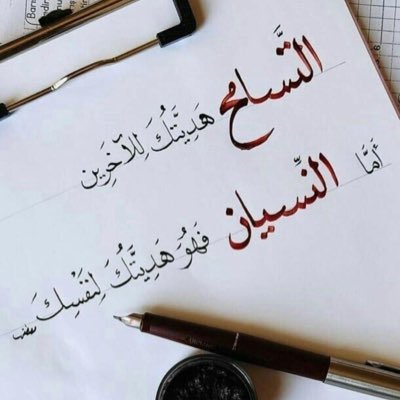 التَّسامُح هَدِيَّتُكَ لِلآخَرِين
أمَّا النِّسيان
فَهُوَ هَدِيَّتُكَ لِنَفْسِكَ